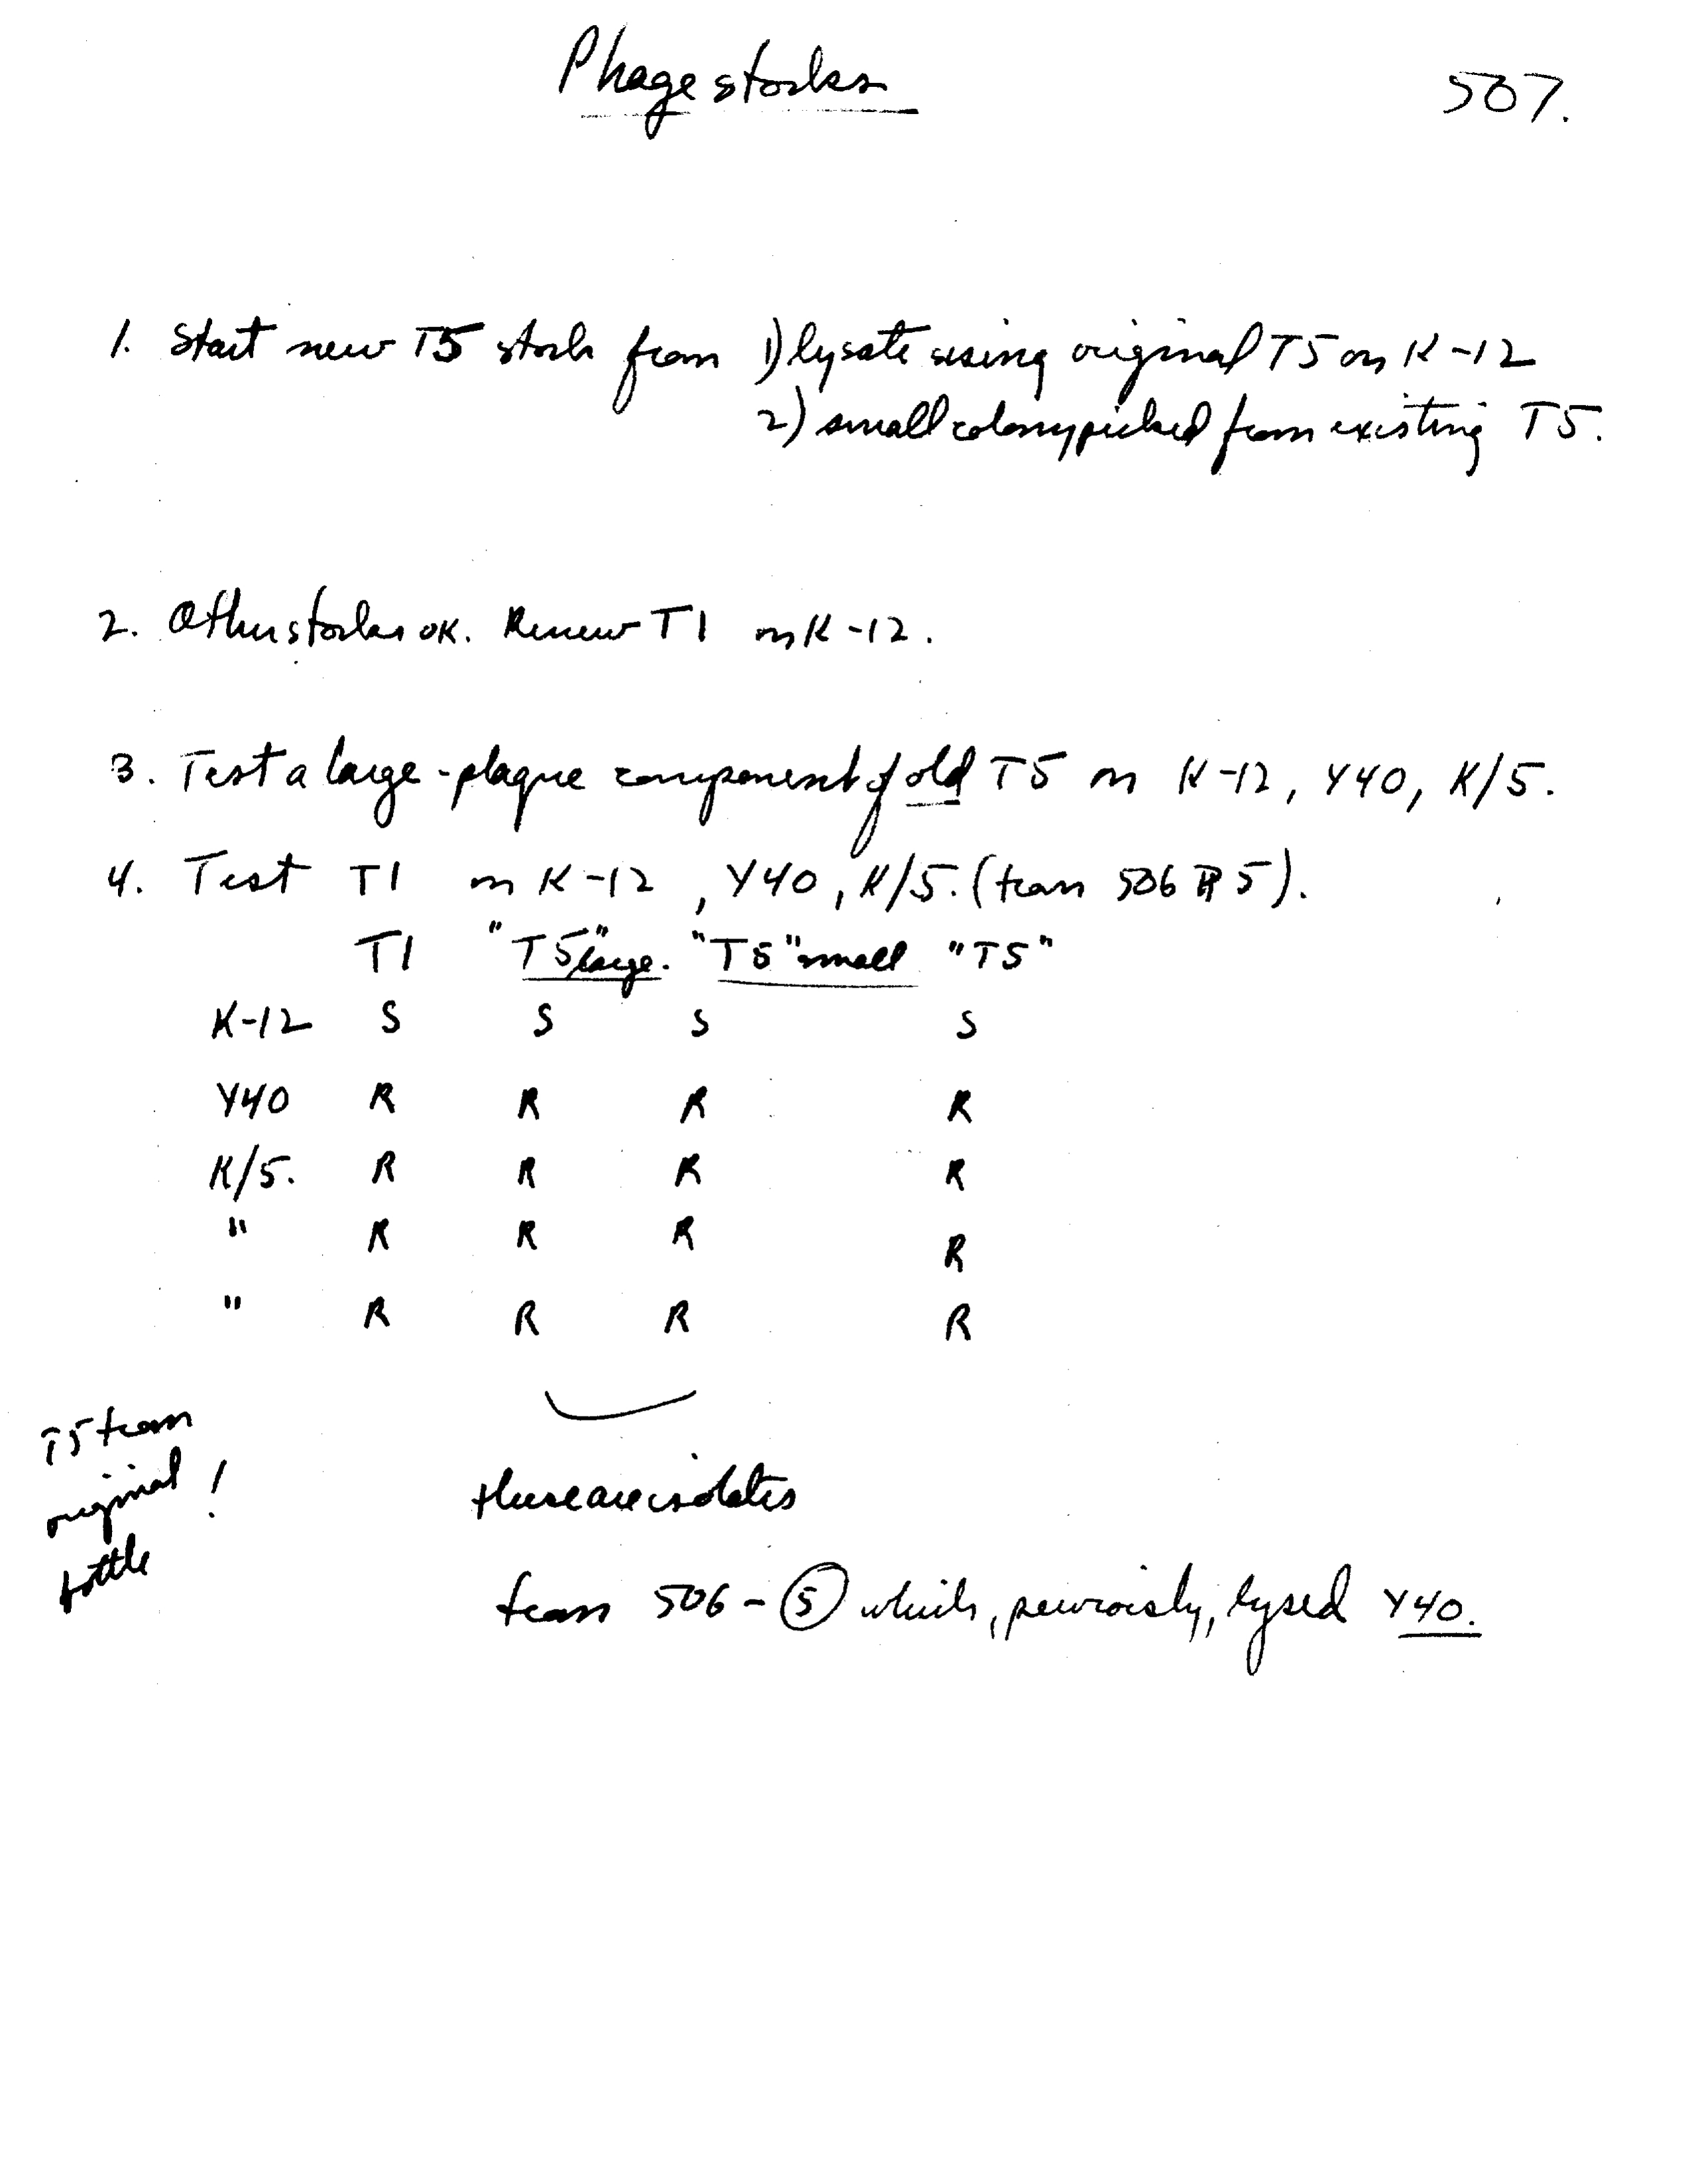 Phage stocks
507.
1. Start new T5 stock from 1) lysate using original T5 on K-12
2) small colony picked from existing T5.
2. Other stocks OK. Renew T1 on K-12.
3. Test a large-plaque component of old T5 on K-12, Y40, K/5.
4. Test T1 on K-12, Y40, K/5. (from 506 5).
T1 "T5" large. "T5" small "T5"
K-12 S S S S
Y40 R R R R
K/5. R R R R
" R R R R
" R R R R
T5 from
original !
bottle
these are isolates
from 506 - 5 which, previously, lysed Y40.